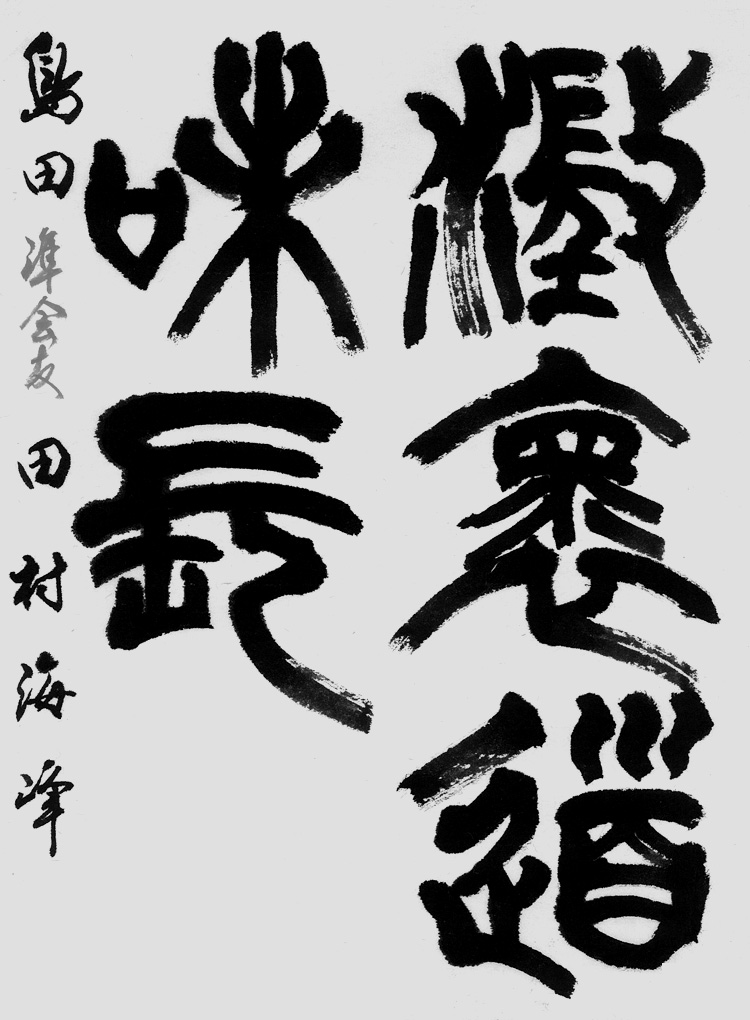 澂褱道
味長
島田 準会友 田村海峰